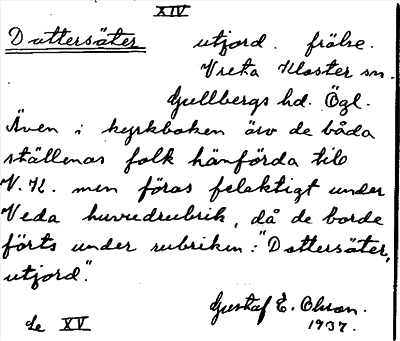 XIV
Dottersäter utjord. frälse.
Vreta Kloster sn.
Gullbergs hd. Ögl.
Även i kyrkboken äro de båda
ställenas folk hänförda till
V.K. men föras felaktigt under
Veda huvudrubrik, då de borde
förts under rubriken: "Dottersäter,
utjord."
Gustaf E. Olsson.
1937.
de XV